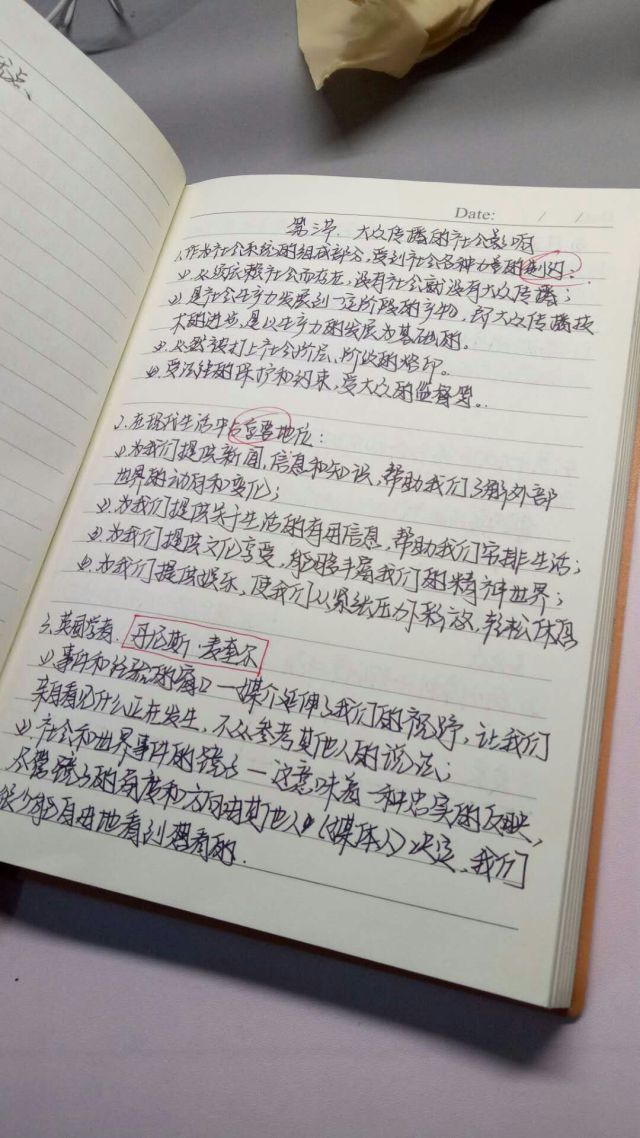 点、
Date: / /
第三节. 大众传播的社会影响
1.作为社会系统的组成部分,受到社会各种力量的制约:
(1).必须依赖社会而存在,没有社会就没有大众传播;
(2).是社会生产力发展到一定阶段的产物,即大众传播技
术的进步,是以生产力的发展为基础的。
(3).必然被打上社会阶层、阶级的烙印。
(4).受法律的保护和约束,受大众的监督等。
2.在现代生活中占重要地位:
(1)为我们提供新闻,信息和知识,帮助我们了解外部
世界的动向和变化;
(2).为我们提供关于生活的有用信息,帮助我们安排生活;
(3).为我们提供文化享受,能够丰富我们的精神世界;
(4).为我们提供娱乐,使我们从紧张压力下释放,轻松休息
3.英国学者.丹尼斯·麦奎尔
(1)事件和经验的窗口—媒介延伸了我们的视野,让我们
亲自看见什么正在发生,不必参考其他人的说法;
(2).社会和世界事件的镜子—这意味着一种忠实的反映,
尽管镜子的角度和方向由其他人(媒体人)决定,我们
很少能自由地看到想看的.